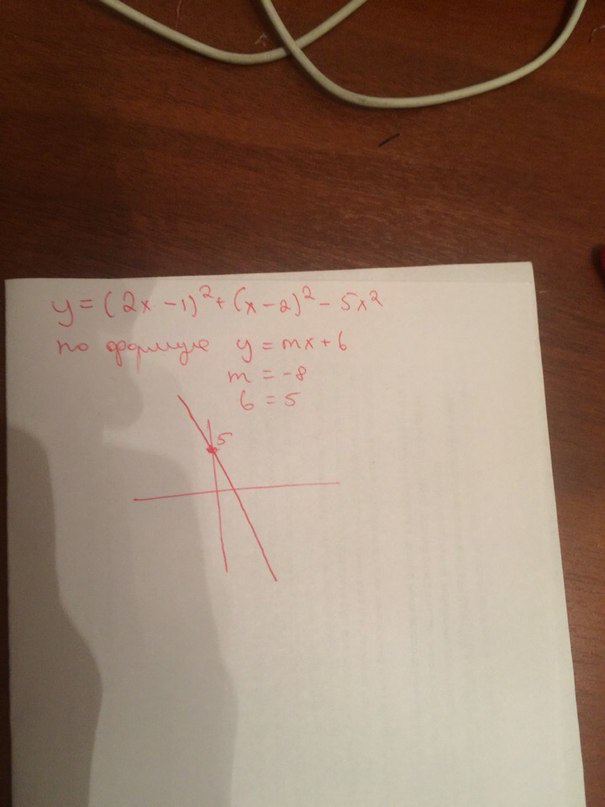 y = (2x - 1)² + (x - 2)² - 5x²
по формуле y = mx + b
m = -8
b = 5
5